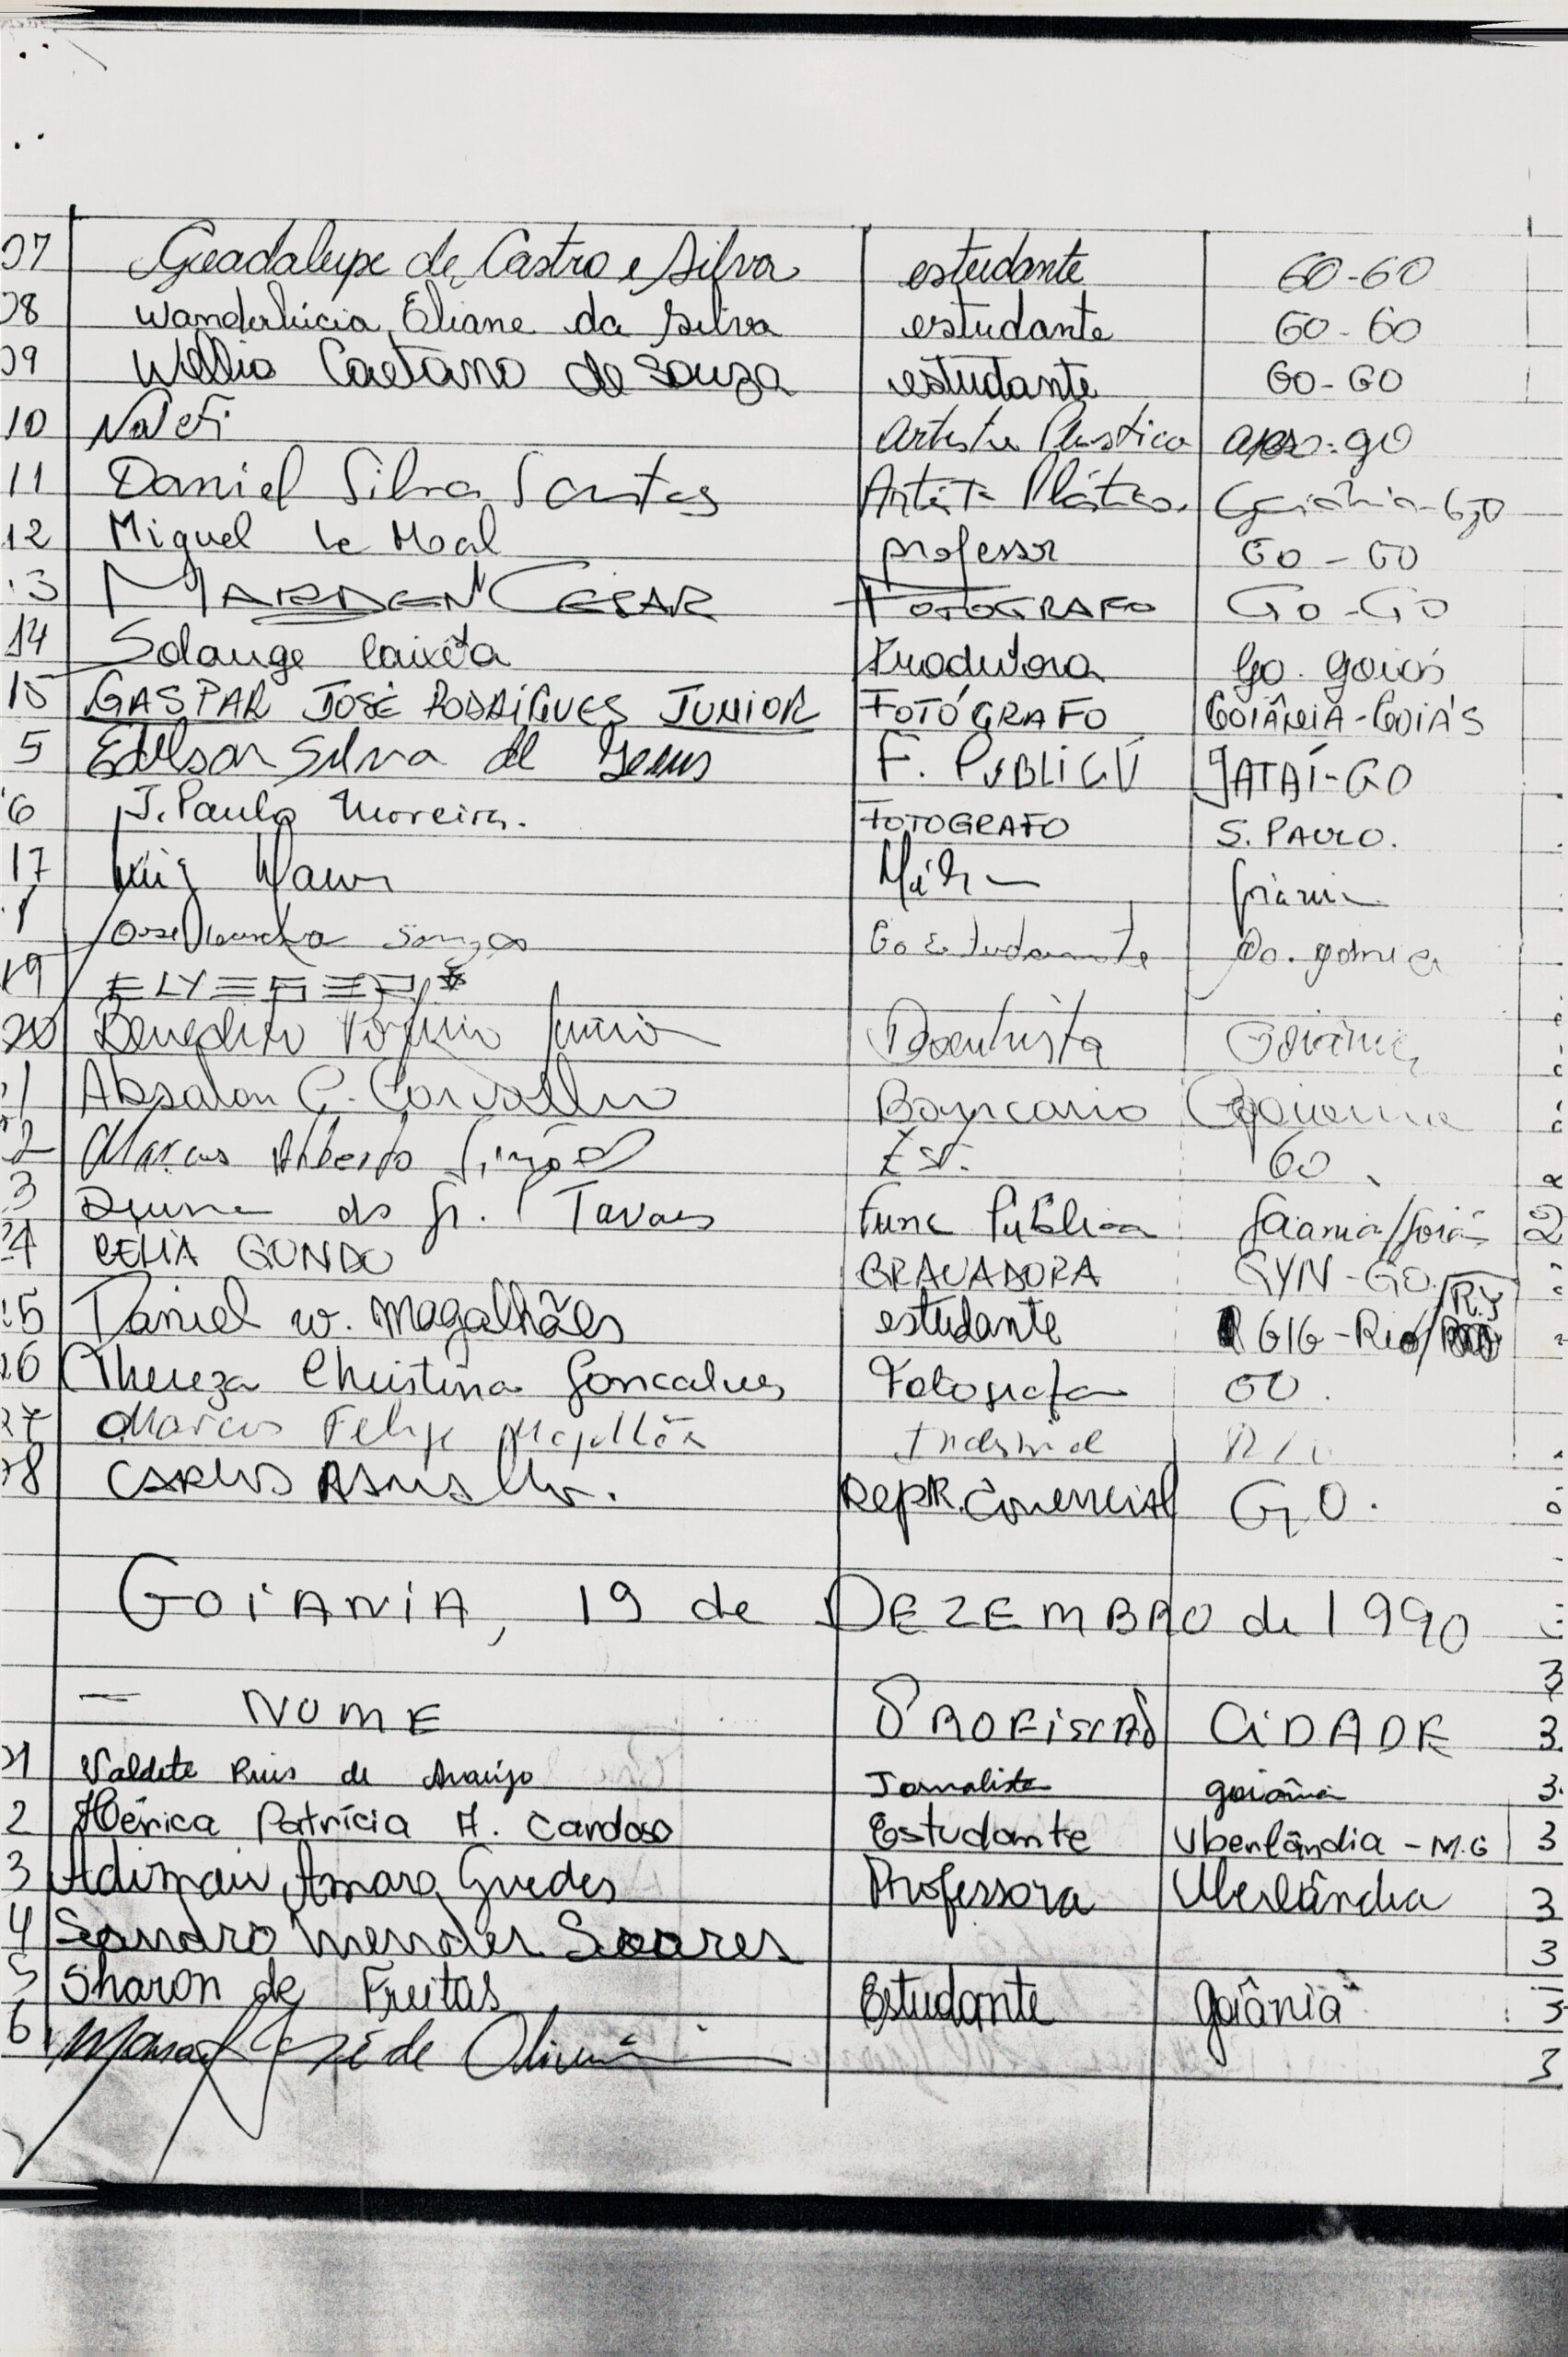 07 Guadalupe de Castro e Silva estudante GO-GO
08 Wanderlúcia Eliane da Silva estudante GO-GO
09 Wellio Caetano de Souza estudante GO-GO
10 Artista Plástico apar-go
11 Daniel Silva Santos Artista Plástico. Goiânia-GO
12 Miguel Le Moal professor GO-GO
13 MARDEN CESAR FOTOGRAFO GO-GO
14 Solange Caixeta Produtora Go. goiás
15 GASPAR JOSÉ RODRIGUES JUNIOR FOTÓGRAFO GOIÂNIA-GOIÁS
5 Edilson Silva de Jesus F. PUBLICU JATAÍ-GO
6 J. Paulo Moreira. FOTOGRAFO S. PAULO.
17 Luiz
Go Estudante Go.
19
20 Benedito Junior Goiânia
1 Absalon C. Carvalho Bancario Goiania
2 Marcus Alberto Est. GO
3 da Tavares Func Publica Goiania/Goiás
24 CELIA GONDO GRAVADORA GYN-GO.
25 Daniel W. Magalhães estudante GIG-Rio/ R.J
26 Thereza Christina Goncalves Fotografa GO.
27 Marcus Felipe Magalhães Industrial
28 CARLOS Repr. Comercial GO.
GOIANIA, 19 de DEZEMBRO de 1990
— NOME PROFISSÃO CIDADE
01 Valdete Ruis de Araújo Jornalista goiânia
2 Hérica Patrícia A. Cardoso Estudante Uberlândia - M.G
3 Adimair Amara Guedes Professora Uberlândia
4 Seandro Mendes Soares
5 Sharon de Freitas Estudante Goiânia
6 José de Oliveira